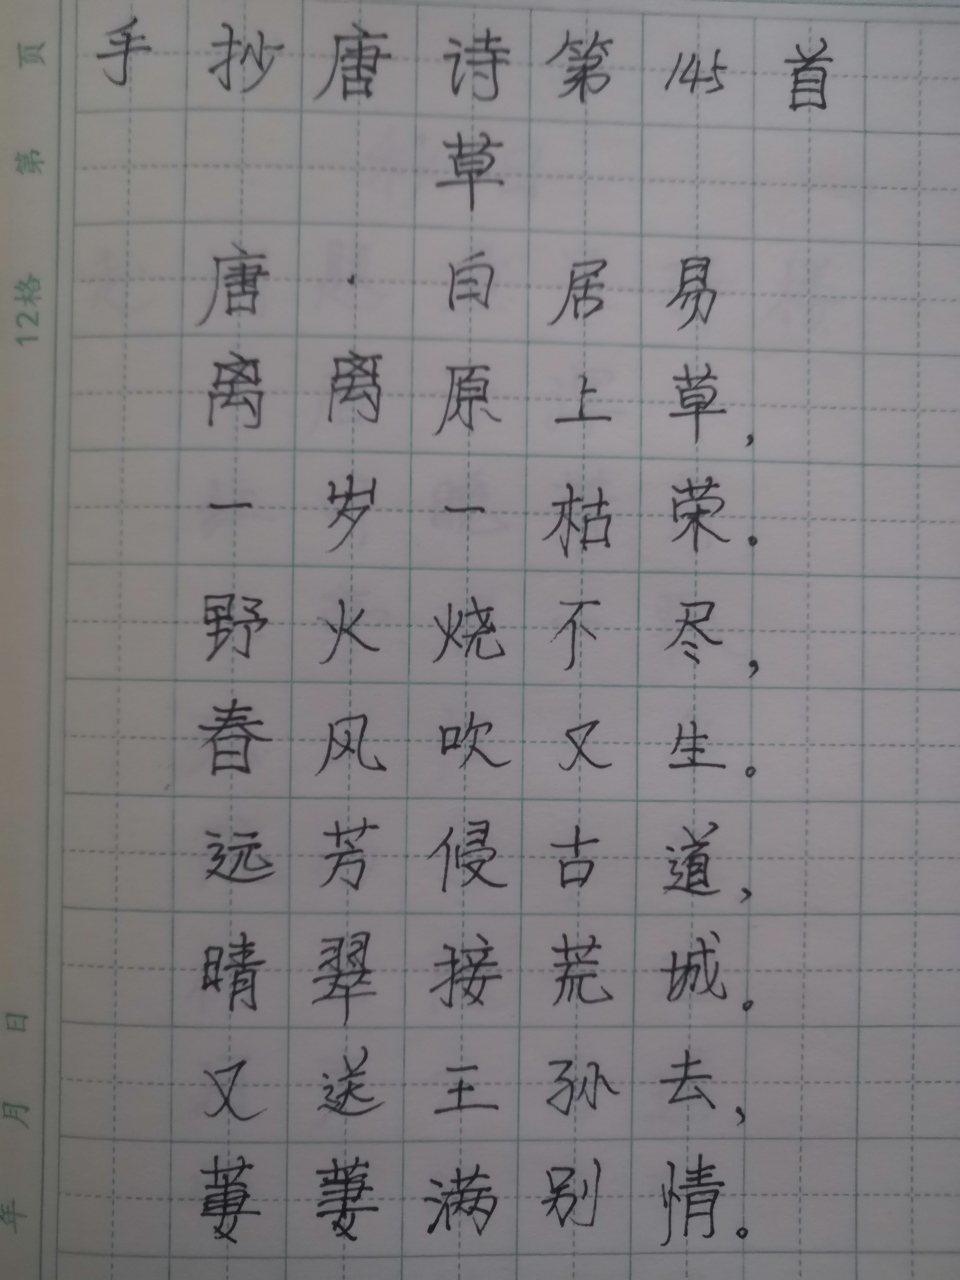 手抄唐诗第145首
草
唐·白居易
离离原上草，
一岁一枯荣。
野火烧不尽，
春风吹又生。
远芳侵古道，
晴翠接荒城。
又送王孙去，
萋萋满别情。
第 页
12格
年 月 日